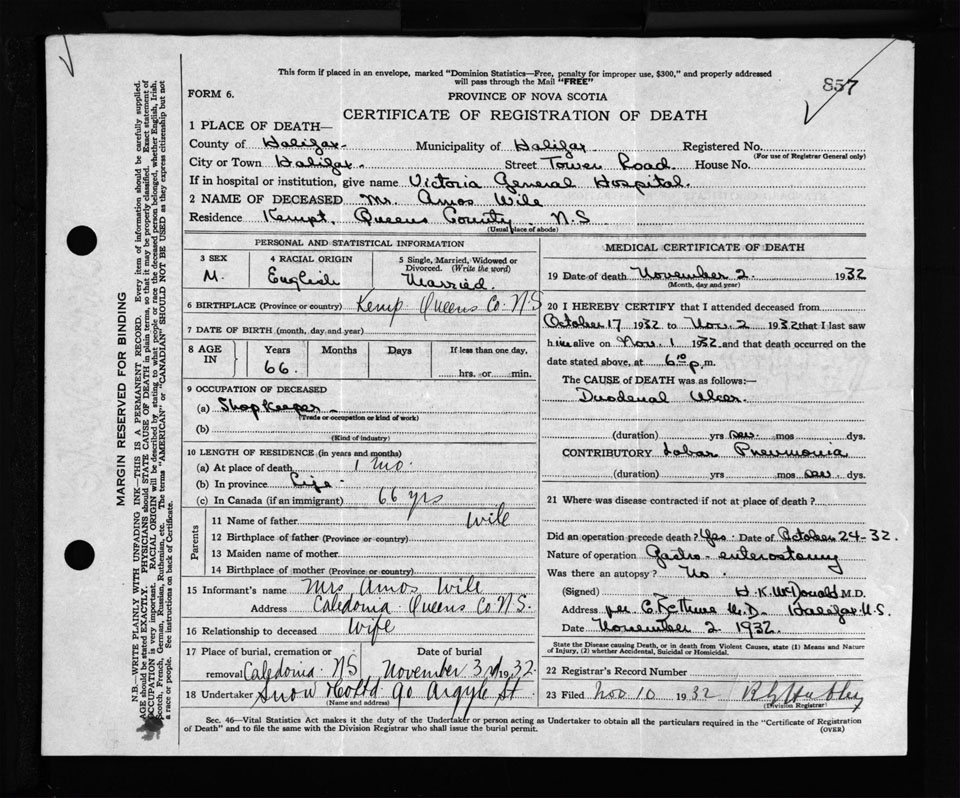 This form if placed in an envelope, marked "Dominion Statistics—Free, penalty for improper use, $300," and properly addressed
will pass through the Mail "FREE"
857
FORM 6.
PROVINCE OF NOVA SCOTIA
CERTIFICATE OF REGISTRATION OF DEATH
1 PLACE OF DEATH—
County of Halifax Municipality of Halifax Registered No.
(For use of Registrar General only)
City or Town Halifax Street Tower Road House No.
If in hospital or institution, give name Victoria General Hospital.
2 NAME OF DECEASED Mr. Amos Wile
Residence Kempt, Queens County N.S
(Usual place of abode)
PERSONAL AND STATISTICAL INFORMATION
3 SEX 4 RACIAL ORIGIN 5 Single, Married, Widowed or Divorced. (Write the word)
M. English Married.
6 BIRTHPLACE (Province or country) Kemp Queens Co. N.S
7 DATE OF BIRTH (month, day and year)
8 AGE IN Years Months Days If less than one day,
66. hrs. or min.
9 OCCUPATION OF DECEASED
(a) Shop Keeper
(Trade or occupation or kind of work)
(b)
(Kind of industry)
10 LENGTH OF RESIDENCE (in years and months)
(a) At place of death 1 mo.
(b) In province Life
(c) In Canada (if an immigrant) 66 yrs
Parents
11 Name of father Wile
12 Birthplace of father (Province or country)
13 Maiden name of mother
14 Birthplace of mother (Province or country)
15 Informant's name Mrs Amos Wile
Address Caledonia Queens Co. N.S.
16 Relationship to deceased Wife
17 Place of burial, cremation or removal Date of burial
Caledonia NS November 3rd 1932.
18 Undertaker Snow & Co Ltd 90 Argyle St
(Name and address)
MEDICAL CERTIFICATE OF DEATH
19 Date of death November 2 1932
(Month, day and year)
20 I HEREBY CERTIFY that I attended deceased from
October 17 1932 to Nov. 2 1932 that I last saw
him alive on Nov. 1 1932, and that death occurred on the
date stated above, at 6 10 p. m.
The CAUSE of DEATH was as follows:—
Duodenal Ulcer.
(duration) yrs mos dys.
CONTRIBUTORY Lobar Pneumonia
(duration) yrs mos dys.
21 Where was disease contracted if not at place of death?
Did an operation precede death? Yes. Date of October 24-32.
Nature of operation Gastro-enterostomy
Was there an autopsy? No.
(Signed) H. K. McDonald M.D.
Address per M.D. Halifax N.S.
Date November 2 1932.
State the Disease causing Death, or in death from Violent Causes, state (1) Means and Nature
of Injury, (2) whether Accidental, Suicidal or Homicidal.
22 Registrar's Record Number
23 Filed Nov 10 1932
(Division Registrar)
Sec. 46—Vital Statistics Act makes it the duty of the Undertaker or person acting as Undertaker to obtain all the particulars required in the "Certificate of Registration
of Death" and to file the same with the Division Registrar who shall issue the burial permit.
(OVER)
MARGIN RESERVED FOR BINDING
N.B.—WRITE PLAINLY WITH UNFADING INK—THIS IS A PERMANENT RECORD. Every item of information should be carefully supplied.
AGE should be stated EXACTLY. PHYSICIANS should STATE CAUSE OF DEATH in plain terms, so that it may be properly classified. Exact statement of
OCCUPATION is very important. RACIAL ORIGIN will be described by stating to what people or race the deceased person belonged, whether English, Irish,
Scotch, French, German, Russian, Ruthenian, etc. The terms "AMERICAN" or "CANADIAN" SHOULD NOT BE USED as they express citizenship but not
a race or people. See instructions on back of Certificate.